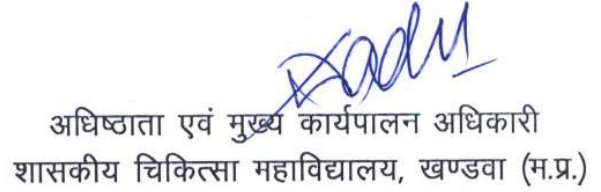 अधिष्ठाता एवं मुख्य कार्यपालन अधिकारी
शासकीय चिकित्सा महाविद्यालय, खण्डवा (म.प्र.)